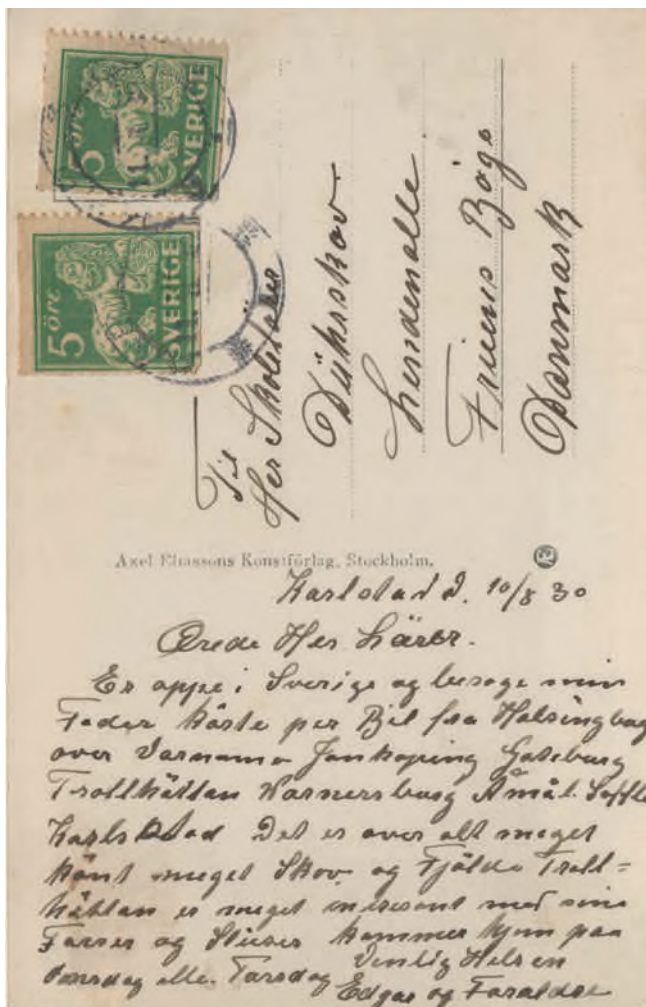 5 ÖRE
SVERIGE
5 ÖRE
SVERIGE
Til
Her Skolelärer
Dükerskov
Lendenalle
Friens Böge
Danmark
Axel Eliassons Konstförlag, Stockholm.
Karlstad d. 10/8 30
Ærede Her Lärer.
Er oppe i Sverige og besøge min
Fader körte per Bil fra Halsingbag
over Varnamo Jonkoping Goteburg
Trollhättan Warnersburg Åmål Soffle
Karlstad Det er over alt meget
könt meget Skov og Fjälde Troll=
hättan er meget intresont med sine
Farser og Sluser kommer hjem paa
Onsdag elle. Torsdag Venlig Helsen
Edgar og Foraldre